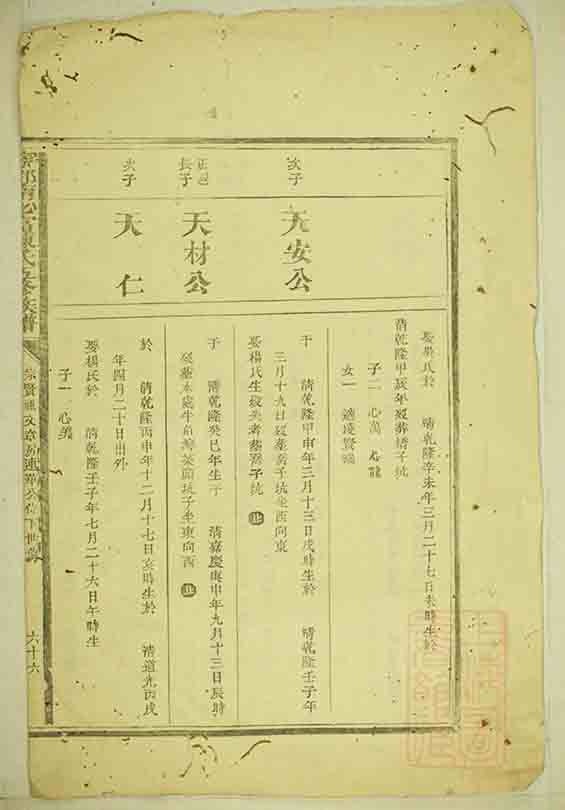 娶吳氏於 清乾隆辛未年三月二十七日未時生於
清乾隆甲辰年歿葬橋子坑
子二 心萬 心龍
女一 適
次子
天安公
于 清乾隆甲申年三月十三日戌時生於 清乾隆壬子年
三月十九日歿葬蒼子坑坐西向東
娶楊氏生歿失考葬 子坑 止
正邑
長子
天材公
于 清乾隆癸巳年生于 清嘉慶庚申年九月十三日辰時
歿葬 處牛角灣 坑子坐東向西 止
次子
天仁
於 清乾隆丙申年十二月十七日亥時生於 清道光丙戌
年四月二十日出外
娶楊氏於 清乾隆壬子年七月二十六日午時生
子一 心義
氏 修族譜
六十六